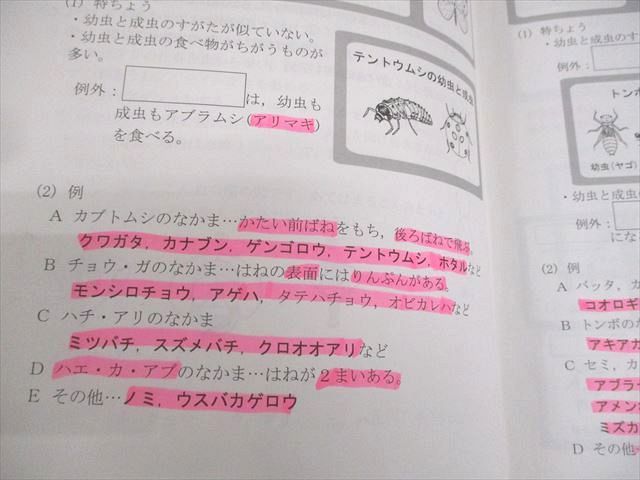 (1) 特ちょう
・幼虫と成虫のすがたが似ていない。
・幼虫と成虫の食べ物がちがうものが
多い。
例外：
は，幼虫も
成虫もアブラムシ(アリマキ)
を食べる。
テントウムシの幼虫と成虫
(2) 例
A カブトムシのなかま…かたい前ばねをもち，後ろばねで飛ぶ。
クワガタ，カナブン，ゲンゴロウ，テントウムシ，ホタルなど
B チョウ・ガのなかま…はねの表面にはりんぷんがある。
モンシロチョウ，アゲハ，タテハチョウ，オビカレハなど
C ハチ・アリのなかま
ミツバチ，スズメバチ，クロオオアリなど
D ハエ・カ・アブのなかま…はねが2まいある。
E その他…ノミ，ウスバカゲロウ
(1) 特ちょう
・幼虫と成虫のす
例外：
トンボ
幼虫(ヤゴ)
・幼虫と成虫
例外：
にな
(2) 例
A バッタ，カ
コオロギ
B トンボの
アキアカ
C セミ，カ
アブラ
アメン
ミズカ
D その他